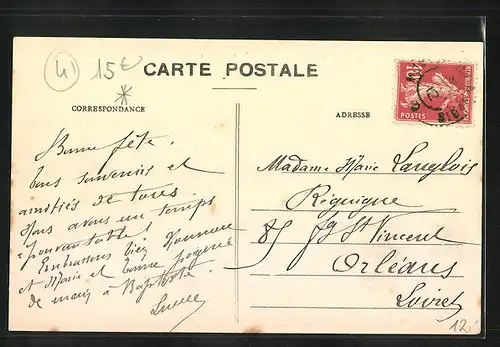 41
15€
CARTE POSTALE
CORRESPONDANCE
ADRESSE
10
POSTES
Bonne fête.
bons souvenirs et
amitiés de tous.
Nous avons un temps
épouvantable!
Embrassons bien
et Marie et bonne poignée
de main à Baptiste.
Lucie
Madame Marie Langlois
85 Fg St Vincent
Orléans
Loiret